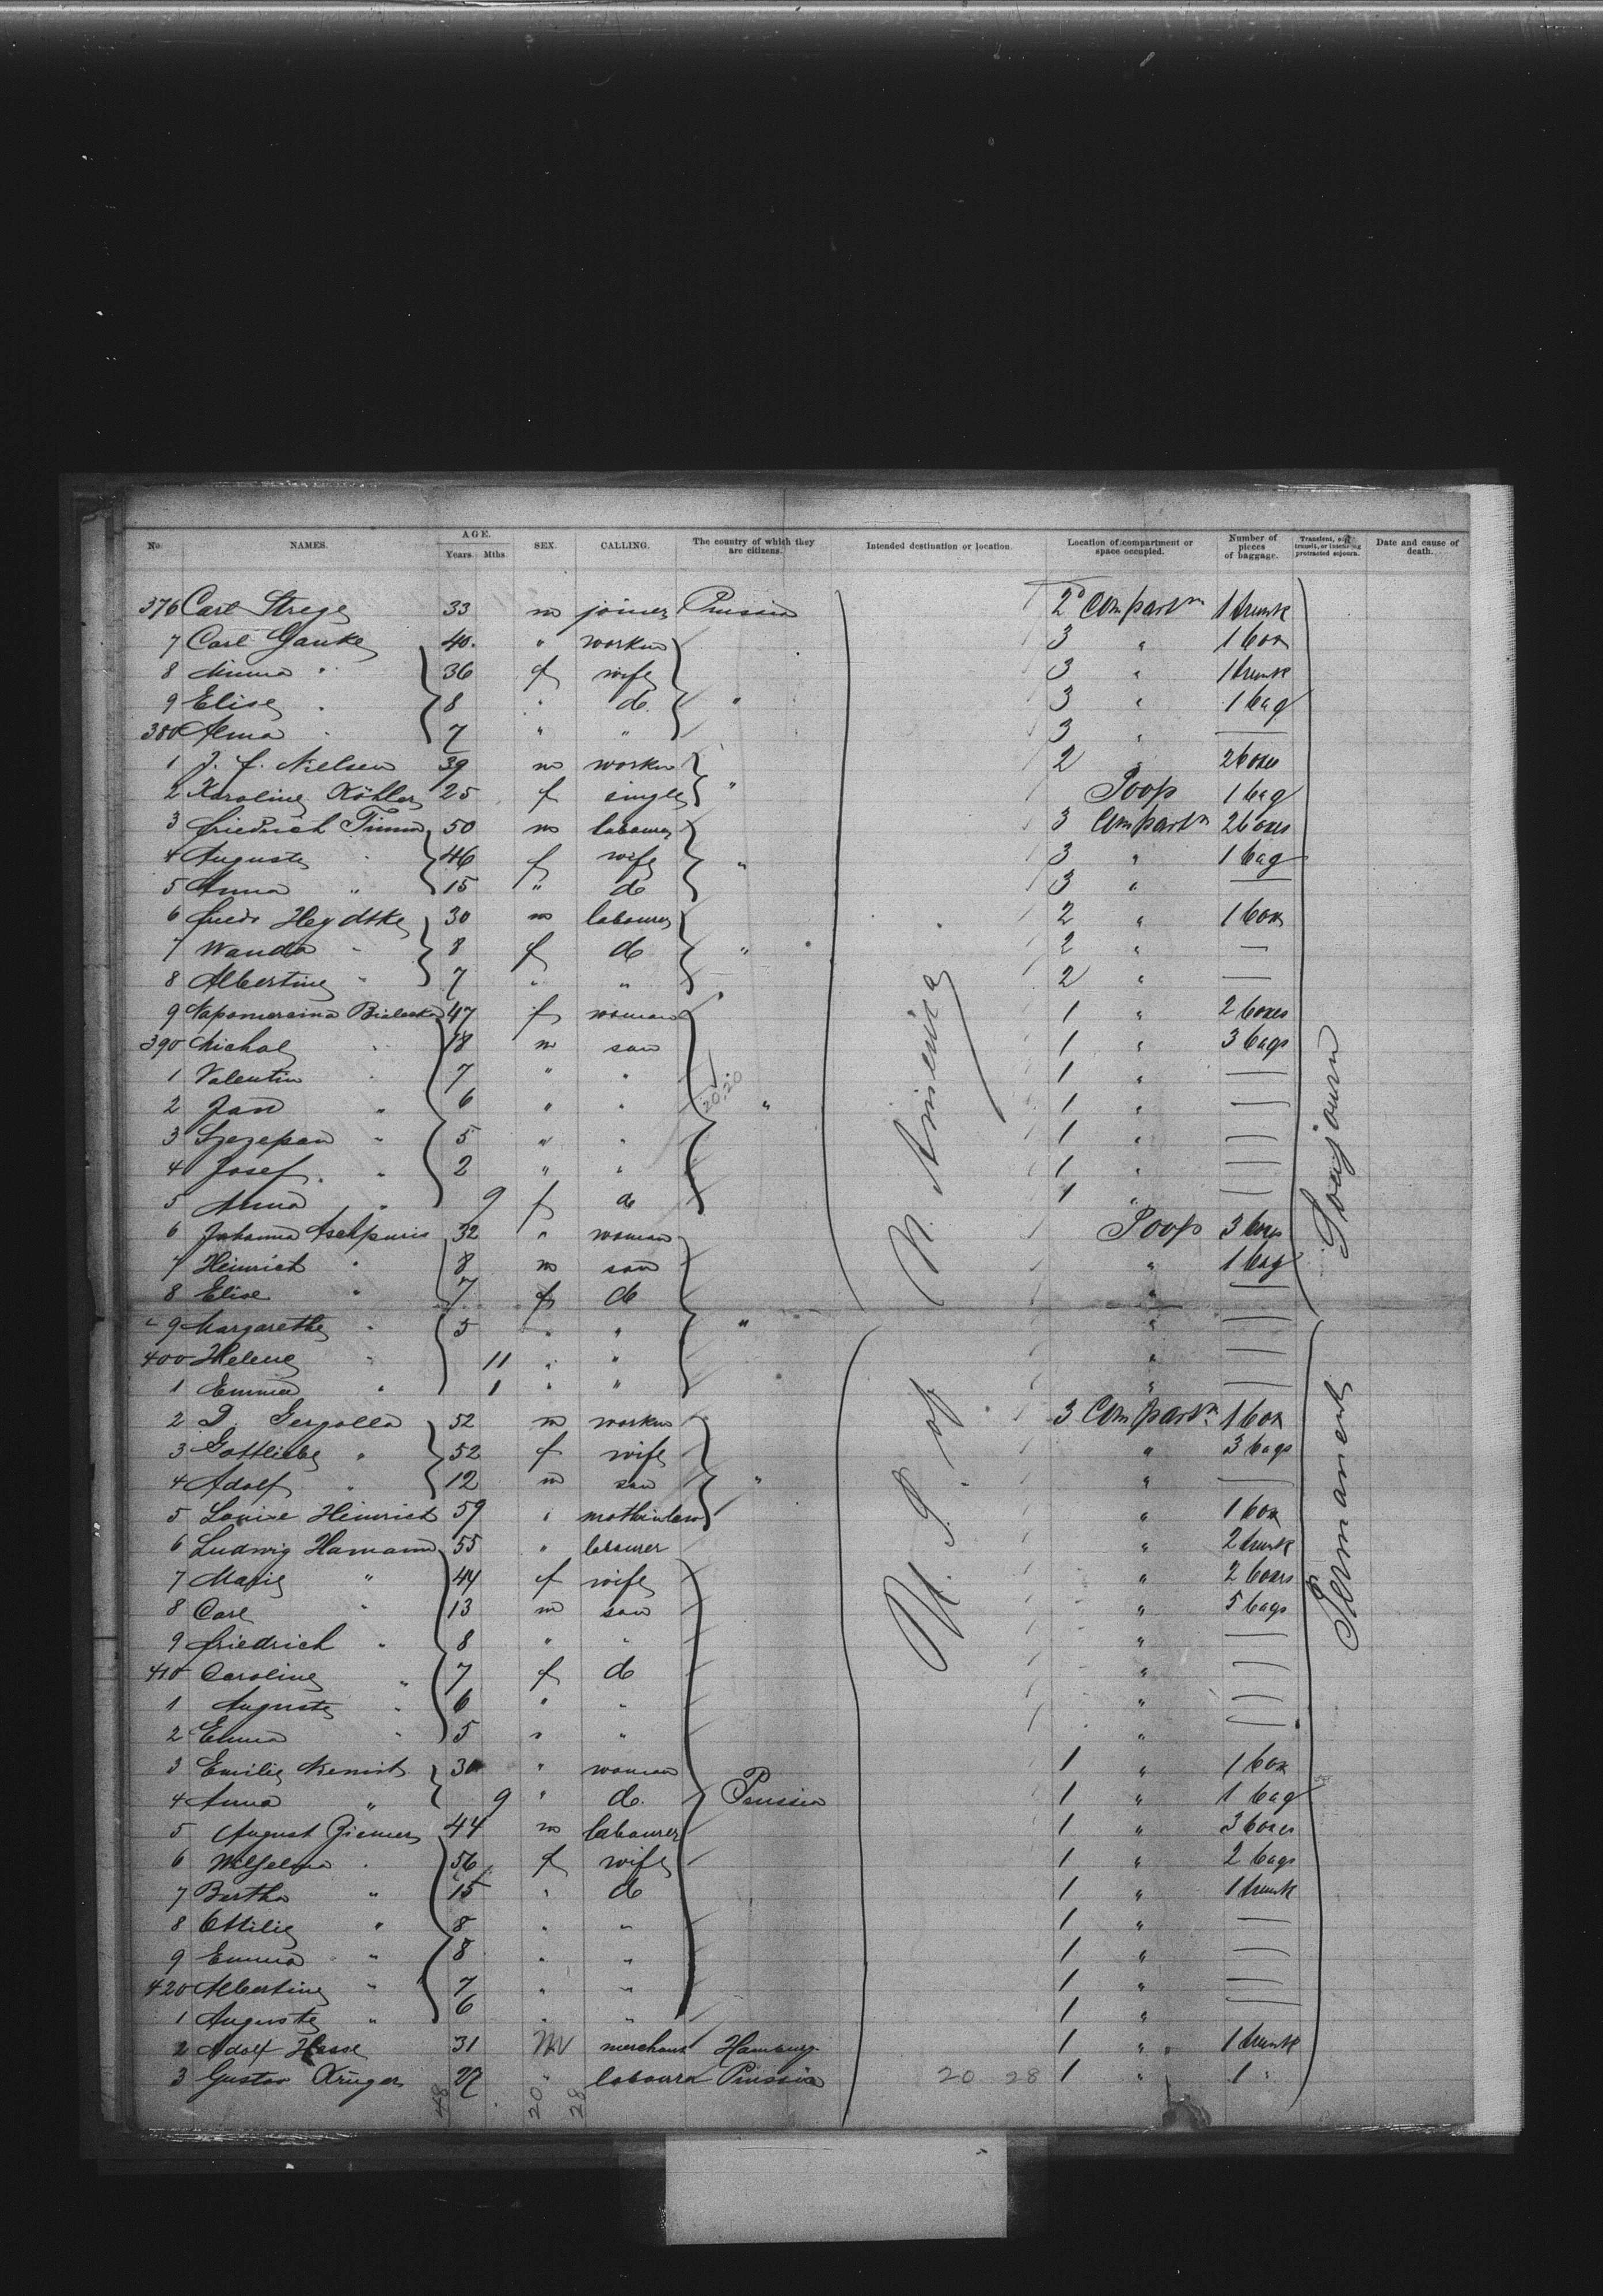 No. NAMES. AGE. Years. Mths. SEX. CALLING. The country of which they are citizens. Intended destination or location. Location of compartment or space occupied. Number of pieces of baggage. Transient, in transit, or intending protracted sojourn. Date and cause of death.
376 Carl Strege 33 m joiner Prussia 2d Compartm 1 trunk
7 Carl Ganke 40 " worker 3 " 1 box
8 Minna " 36 f wife 3 " 1 trunk
9 Elise " 8 " do. " 3 " 1 bag
380 Alma " 7 " " 3 " —
1 J. f. Nielsen 39 m worker 2 " 2 boxes
2 Karoline Köhler 25 f single " Poop 1 bag
3 friedrich Timm 50 m labourer 3 Compartm 2 boxes
4 Auguste " 46 f wife " 3 " 1 bag
5 Anna " 15 " do 3 " —
6 friedr Heydtke 30 m labourer 2 " 1 box
7 Wanda " 8 f do " 2 " —
8 Albertine " 7 " " 2 " —
9 47 f woman 1 " 2 boxes
390 Michal " 18 m son 1 " 3 bags
1 Valentin " 7 " " 1 " —
2 Jan " 6 " " 20.20 " 1 " —
3 Szczepan " 5 " " 1 " —
4 Josef " 2 " " 1 " —
5 Anna " 9 f do 1 " —
6 Johanna 32 " woman Poop 3 boxes
7 Heinrich " 8 m son " 1 bag
8 Elise " 7 f do " —
9 Margarethe " 5 " " " " —
400 Helene " 11 " " " —
1 Emma " 1 " " " —
U. S. of N. America
Sourjourn
Permanent
2 D. Gergolla 52 m worker 3 Compartm 1 box
3 Gottliebe " 52 f wife " 3 bags
4 Adolf " 12 m son " " —
5 Louise Heinrich 59 " mothinlaw " 1 box
6 Ludwig Hamann 55 " labourer " 2 trunk
7 Marie " 44 f wife " 2 boxes
8 Carl " 13 m son " 5 bags
9 friedrich " 8 " " " —
410 Caroline " 7 f do " —
1 Auguste " 6 " " " —
2 Emma " 5 " " " —
3 Emilie 30 " woman 1 " 1 box
4 Anna " 9 " do. Prussia 1 " 1 bag
5 August Ziemer 44 m labourer 1 " 3 boxes
6 Wilhelmine " 56 f wife 1 " 2 bags
7 Bertha " 15 " do 1 " 1 trunk
8 Ottilie " 8 " " 1 " —
9 Emma " 8 " " 1 " —
420 Albertine " 7 " " 1 " —
1 Auguste " 6 " " 1 " —
2 Adolf Hesse 31 M merchant Hamburg 1 " 1 trunk
3 Gustav Krüger 27 " labourer Prussia 20 28 1 " 1 "
48 20 28